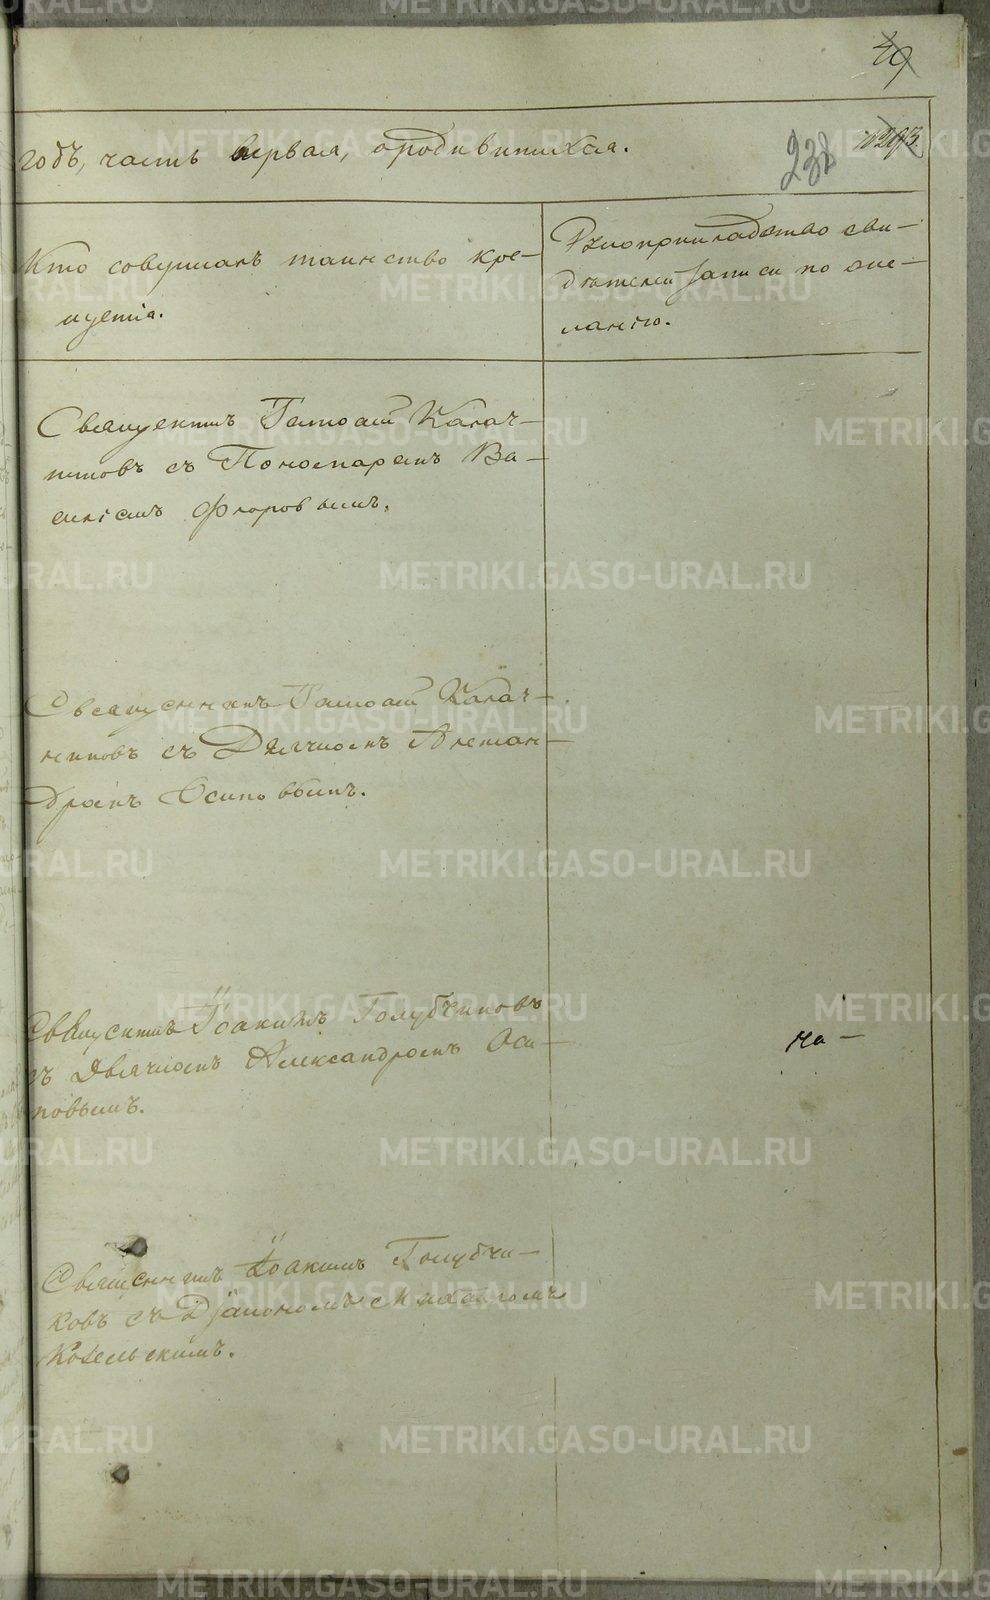 49
годъ, часть первая, о родившихся.
232
Кто совершалъ таинство кре-
щенія.
Рукоприкладство сви-
дѣтелей записи по же-
ланію.
Священникъ Калач-
никовъ съ Пономаремъ Ва-
силіемъ Флоровымъ.
Священникъ Калач-
никовъ съ Дьячкомъ Алексан-
дромъ Осиповымъ.
Священникъ Іоакимъ Голубчиковъ
съ Дьячкомъ Александромъ Оси-
повымъ.
на-
Священникъ Іоакимъ Голубчи-
ковъ съ Діакономъ Михаиломъ
Козельскимъ.
METRIKI.GASO-URAL.RU